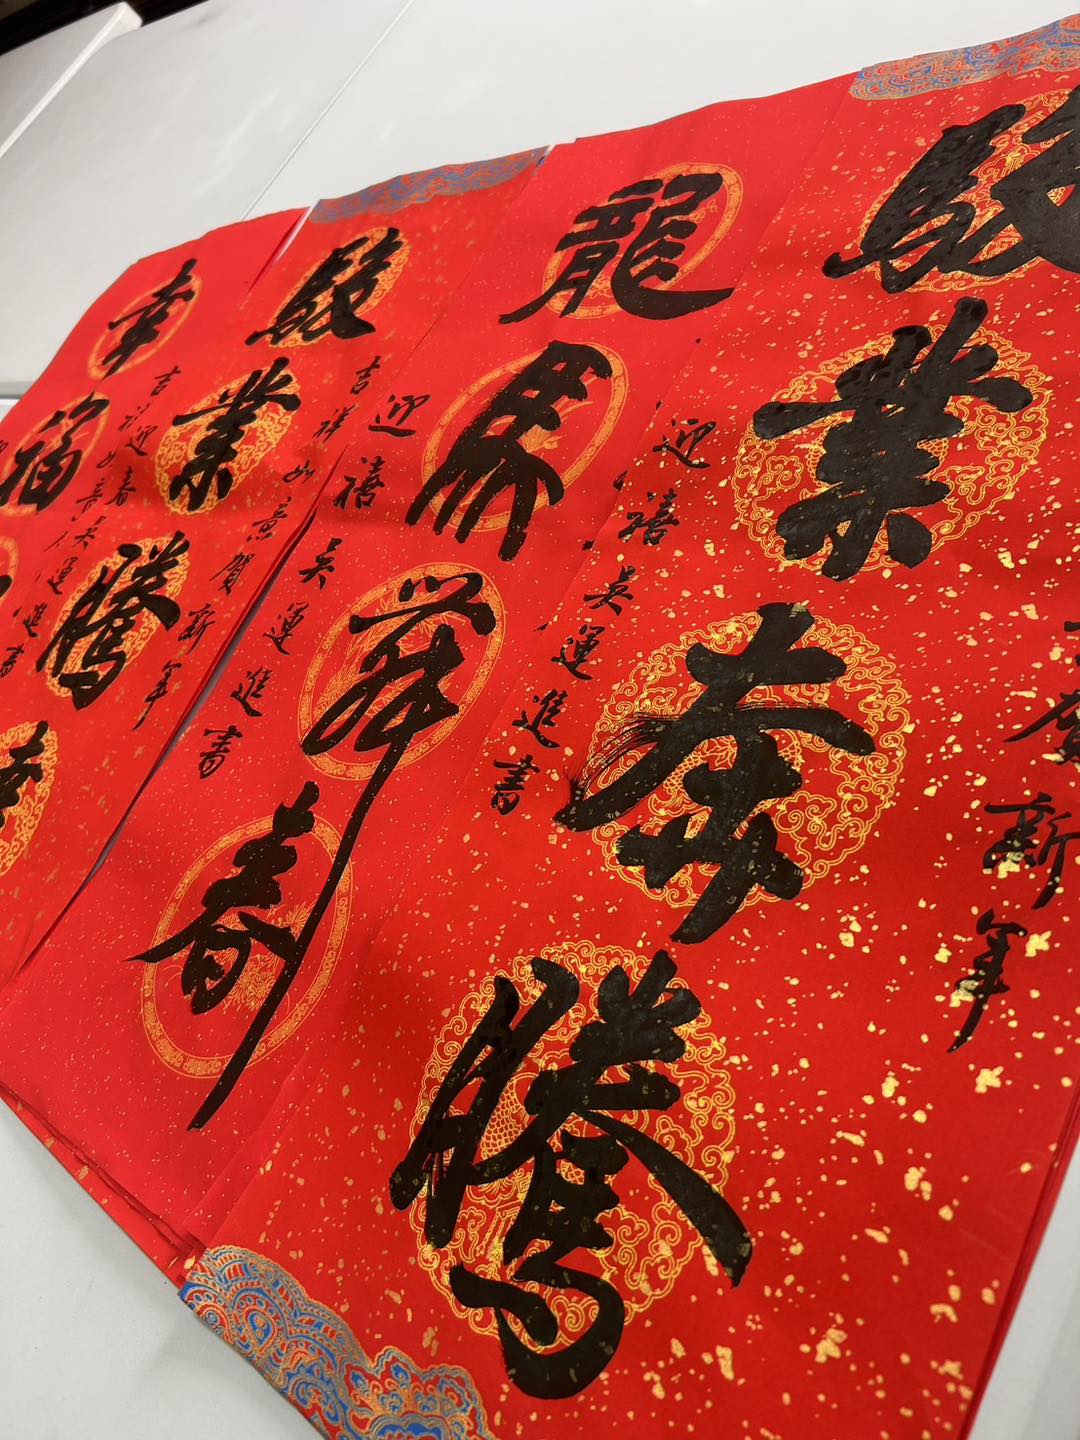 賀新年
駿業奔騰
迎禧吳運進書
龍馬舞春
迎禧吳運進書
吉祥如意賀新年
駿業騰
迎春吳運進書
吉祥如意
幸福